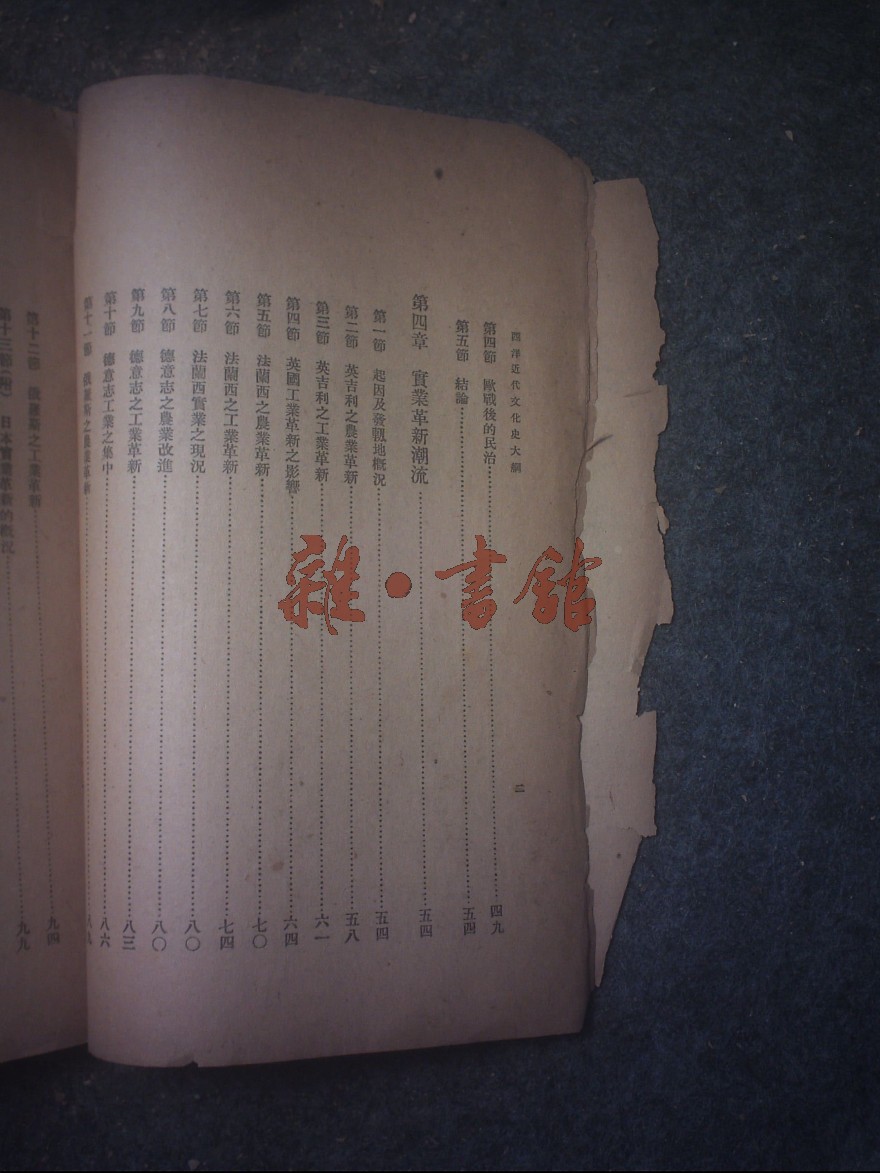 西洋近代文化史大綱
二
第四節 歐戰後的民治 四九
第五節 結論 五四
第四章 實業革新潮流 五四
第一節 起因及發軔地概況 五四
第二節 英吉利之農業革新 五八
第三節 英吉利之工業革新 六一
第四節 英國工業革新之影響 六四
第五節 法蘭西之農業革新 七〇
第六節 法蘭西之工業革新 七四
第七節 法蘭西實業之現況 八〇
第八節 德意志之農業改進 八〇
第九節 德意志之工業革新 八三
第十節 德意志工業之集中 八六
第十一節 俄羅斯之農業革新 八九
第十二節 俄羅斯之工業革新 九四
第十三節(附) 日本實業革新的概況 九九
雜·書館